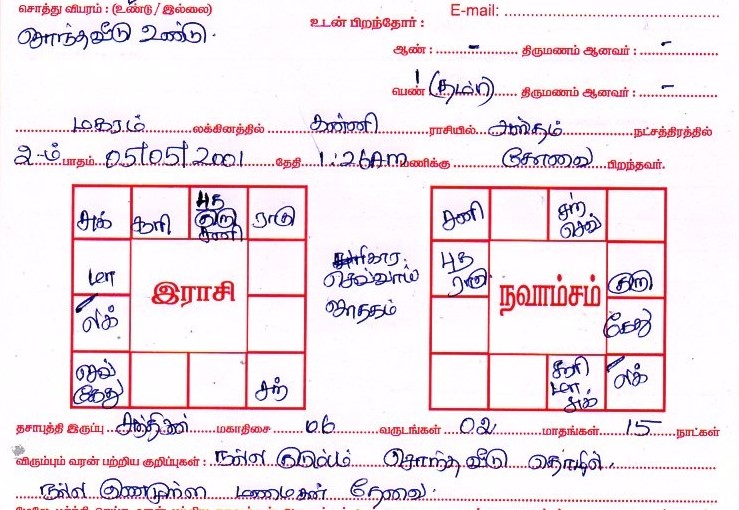 சொத்து விபரம் : (உண்டு / இல்லை)
E-mail:
சொந்தவீடு உண்டு.
உடன் பிறந்தோர் :
ஆண் : - திருமணம் ஆனவர் : -
பெண் 1 திருமணம் ஆனவர் : -
மகரம் லக்கினத்தில் கன்னி ராசியில் அஸ்தம் நட்சத்திரத்தில்
2-ம் பாதம் 05/05/2001 தேதி 1:26Am மணிக்கு கோவை பிறந்தவர்.
சுக் சூரி புத குரு சனி ராகு
மா
இராசி
லக்
செவ் கேது
சந்
பரிகார
செவ்வாய்
ஜாதகம்
சனி சந் செவ்
புத ராகு
நவாம்சம்
குரு
கேது
சூரி மா சுக் லக்
தசாபுத்தி இருப்பு சந்திரன் மகாதிசை 06 வருடங்கள் 02 மாதங்கள் 15 நாட்கள்
விரும்பும் வரன் பற்றிய குறிப்புகள் : நல்ல குடும்பம் சொந்தவீடு தொழில்.
நல்ல குணமுள்ள மணமகன் தேவை.